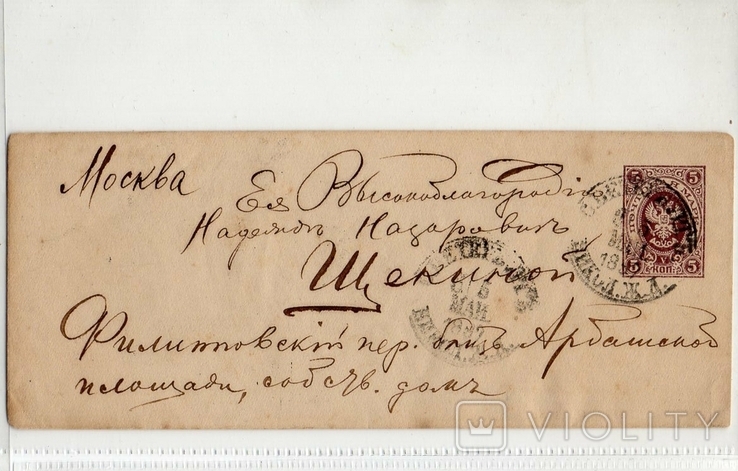 Москва
Ея Высокоблагородію
Надеждѣ Назаровнѣ
Щекиной
Филиповскій пер. близъ Арбатской
площади, собств. домъ
5 5
5 КОП. 5
МАЙ
VIOLITY